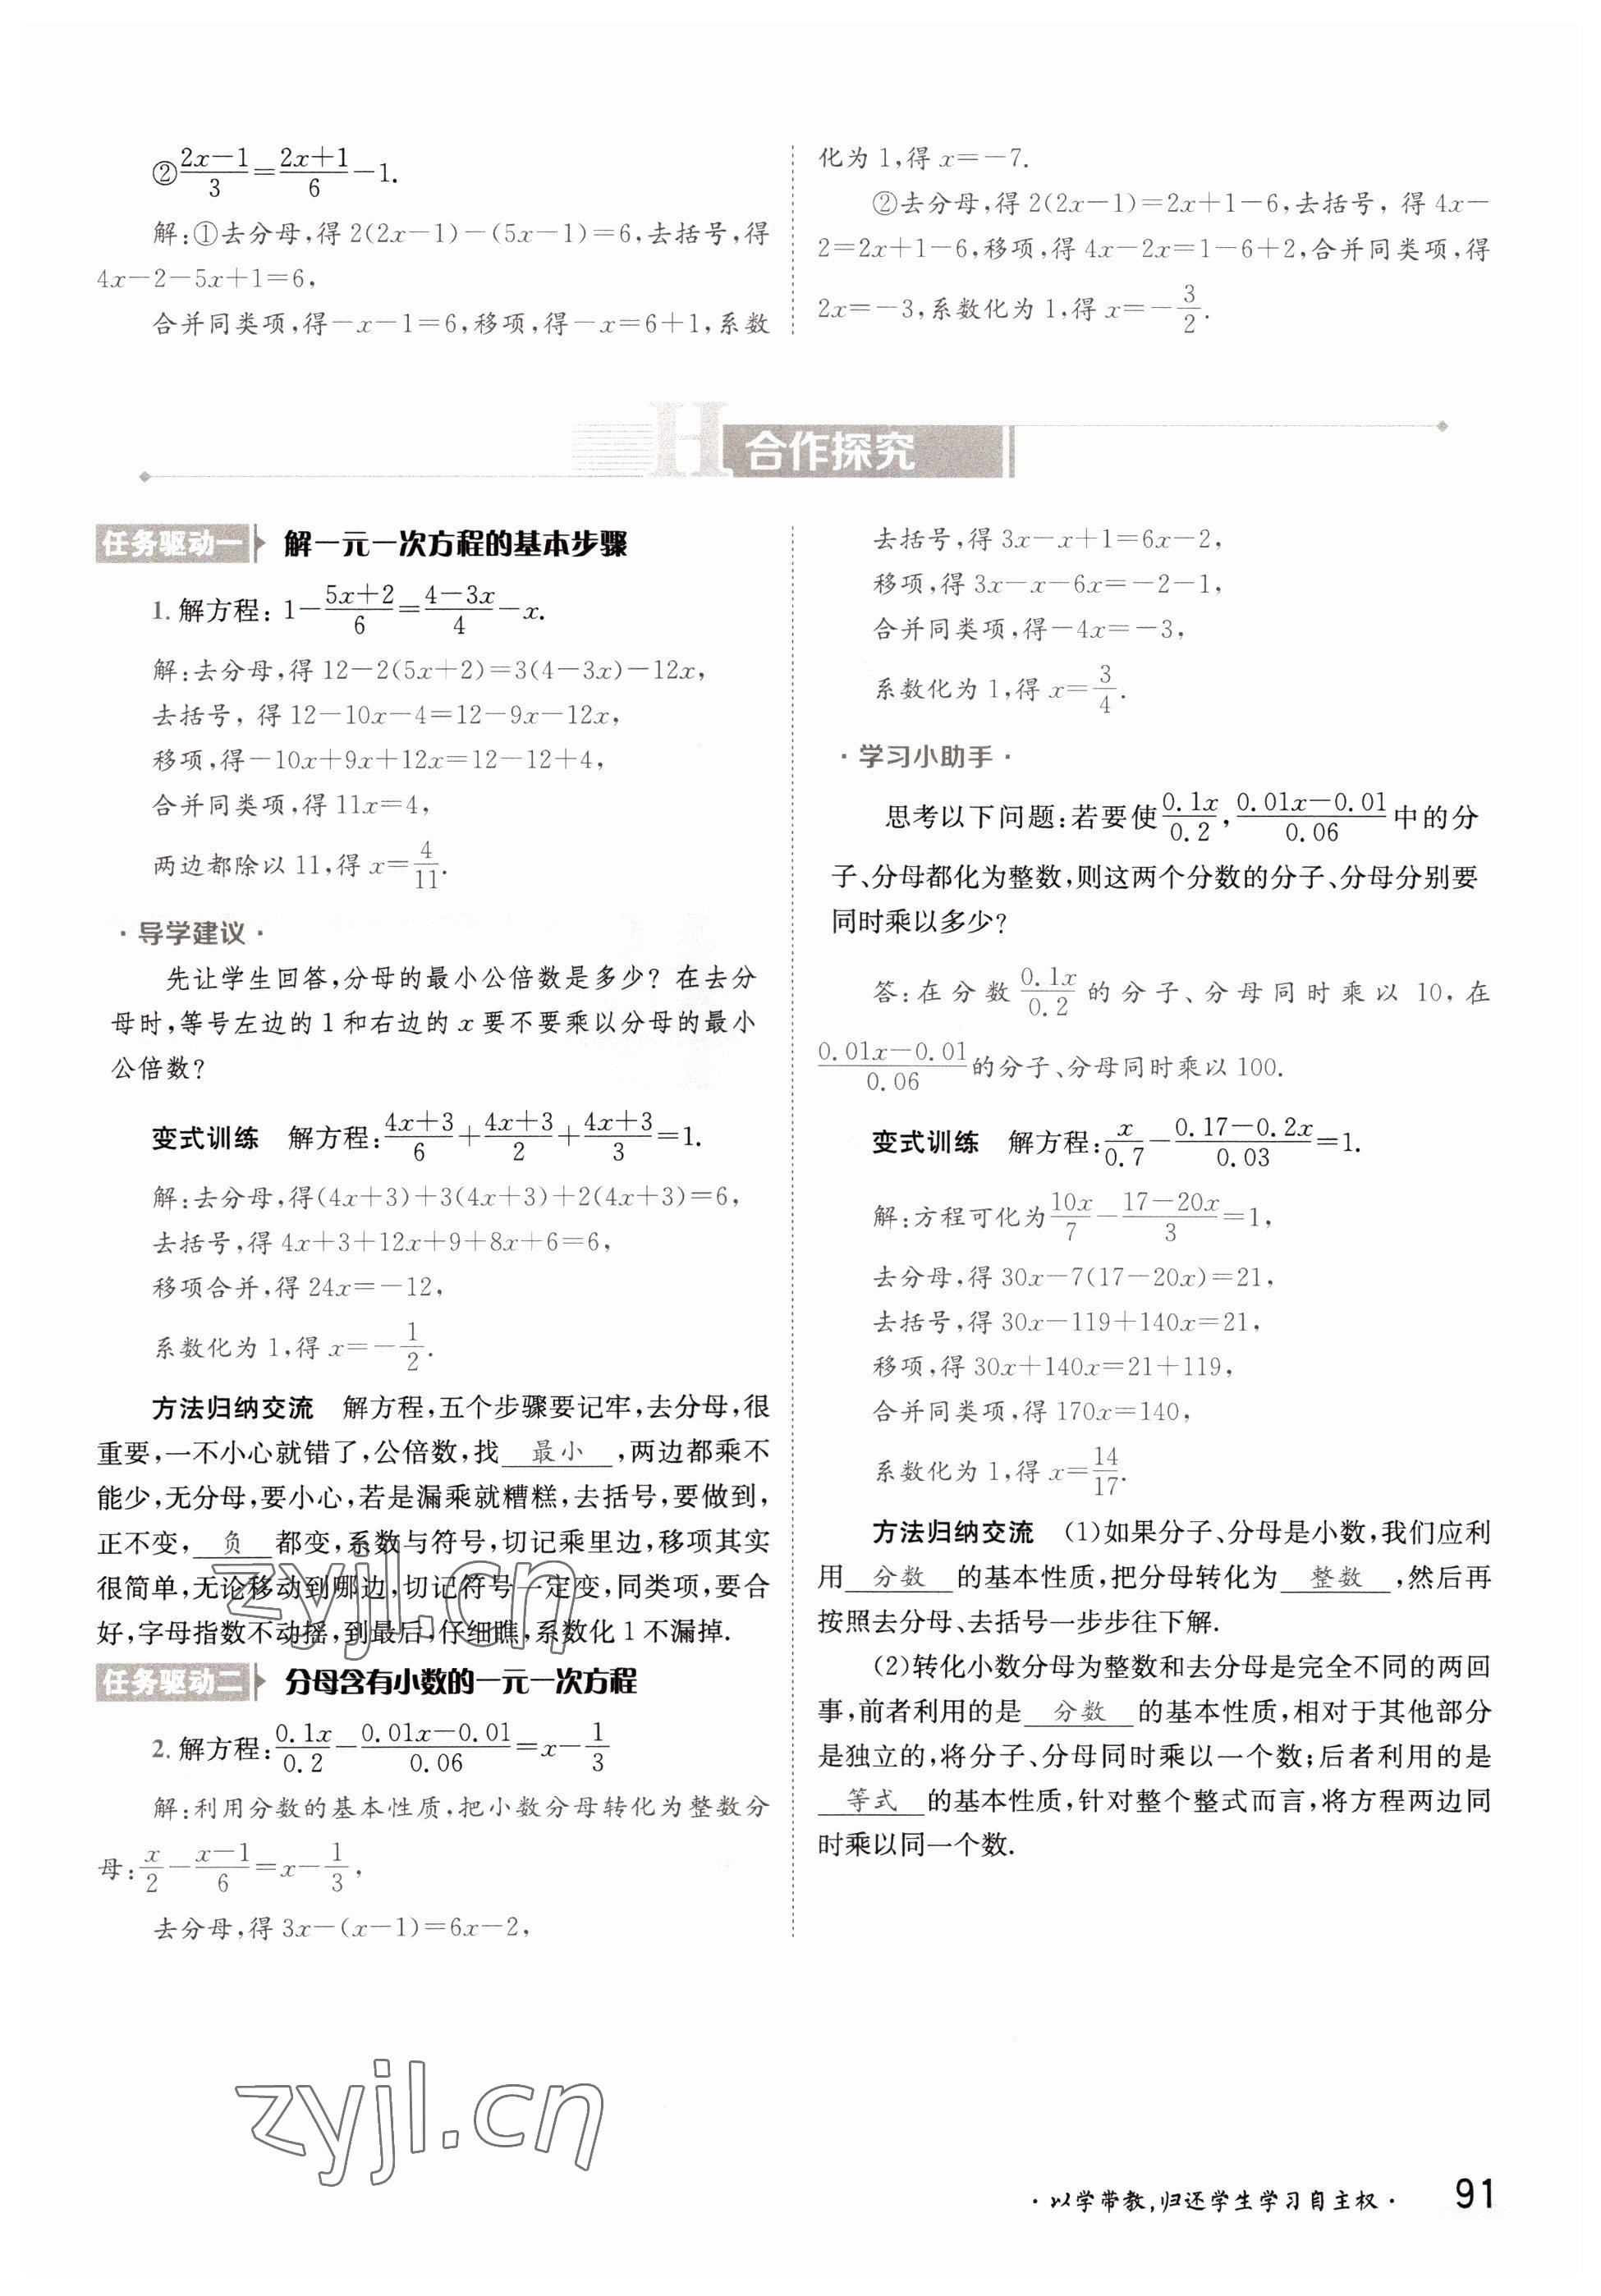 ②$\frac{2x-1}{3}=\frac{2x+1}{6}-1$.
解:①去分母,得 2(2x-1)-(5x-1)=6,去括号,得
4x-2-5x+1=6,
合并同类项,得-x-1=6,移项,得-x=6+1,系数
化为 1,得 x=-7.
②去分母,得 2(2x-1)=2x+1-6,去括号, 得 4x-
2=2x+1-6,移项,得 4x-2x=1-6+2,合并同类项,得
2x=-3,系数化为 1,得 x=-$\frac{3}{2}$.
H 合作探究
任务驱动一 解一元一次方程的基本步骤
1. 解方程: $1-\frac{5x+2}{6}=\frac{4-3x}{4}-x$.
解:去分母,得 12-2(5x+2)=3(4-3x)-12x,
去括号, 得 12-10x-4=12-9x-12x,
移项,得-10x+9x+12x=12-12+4,
合并同类项,得 11x=4,
两边都除以 11,得 x=$\frac{4}{11}$.
·导学建议·
先让学生回答,分母的最小公倍数是多少? 在去分
母时,等号左边的 1 和右边的 x 要不要乘以分母的最小
公倍数?
变式训练 解方程:$\frac{4x+3}{6}+\frac{4x+3}{2}+\frac{4x+3}{3}=1$.
解:去分母,得(4x+3)+3(4x+3)+2(4x+3)=6,
去括号,得 4x+3+12x+9+8x+6=6,
移项合并,得 24x=-12,
系数化为 1,得 x=-$\frac{1}{2}$.
方法归纳交流 解方程,五个步骤要记牢,去分母,很
重要,一不小心就错了,公倍数,找 最小 ,两边都乘不
能少,无分母,要小心,若是漏乘就糟糕,去括号,要做到,
正不变, 负 都变,系数与符号,切记乘里边,移项其实
很简单,无论移动到哪边,切记符号一定变,同类项,要合
好,字母指数不动摇,到最后,仔细瞧,系数化 1 不漏掉.
任务驱动二 分母含有小数的一元一次方程
2. 解方程:$\frac{0.1x}{0.2}-\frac{0.01x-0.01}{0.06}=x-\frac{1}{3}$
解:利用分数的基本性质,把小数分母转化为整数分
母:$\frac{x}{2}-\frac{x-1}{6}=x-\frac{1}{3}$,
去分母,得 3x-(x-1)=6x-2,
去括号,得 3x-x+1=6x-2,
移项,得 3x-x-6x=-2-1,
合并同类项,得-4x=-3,
系数化为 1,得 x=$\frac{3}{4}$.
·学习小助手·
思考以下问题:若要使$\frac{0.1x}{0.2}$,$\frac{0.01x-0.01}{0.06}$中的分
子、分母都化为整数,则这两个分数的分子、分母分别要
同时乘以多少?
答:在分数$\frac{0.1x}{0.2}$的分子、分母同时乘以 10,在
$\frac{0.01x-0.01}{0.06}$的分子、分母同时乘以 100.
变式训练 解方程:$\frac{x}{0.7}-\frac{0.17-0.2x}{0.03}=1$.
解:方程可化为$\frac{10x}{7}-\frac{17-20x}{3}=1$,
去分母,得 30x-7(17-20x)=21,
去括号,得 30x-119+140x=21,
移项,得 30x+140x=21+119,
合并同类项,得 170x=140,
系数化为 1,得 x=$\frac{14}{17}$.
方法归纳交流 (1)如果分子、分母是小数,我们应利
用 分数 的基本性质,把分母转化为 整数 ,然后再
按照去分母、去括号一步步往下解.
(2)转化小数分母为整数和去分母是完全不同的两回
事,前者利用的是 分数 的基本性质,相对于其他部分
是独立的,将分子、分母同时乘以一个数;后者利用的是
等式 的基本性质,针对整个整式而言,将方程两边同
时乘以同一个数.
zyjl.cn
zyjl.cn
·以学带教,归还学生学习自主权· 91